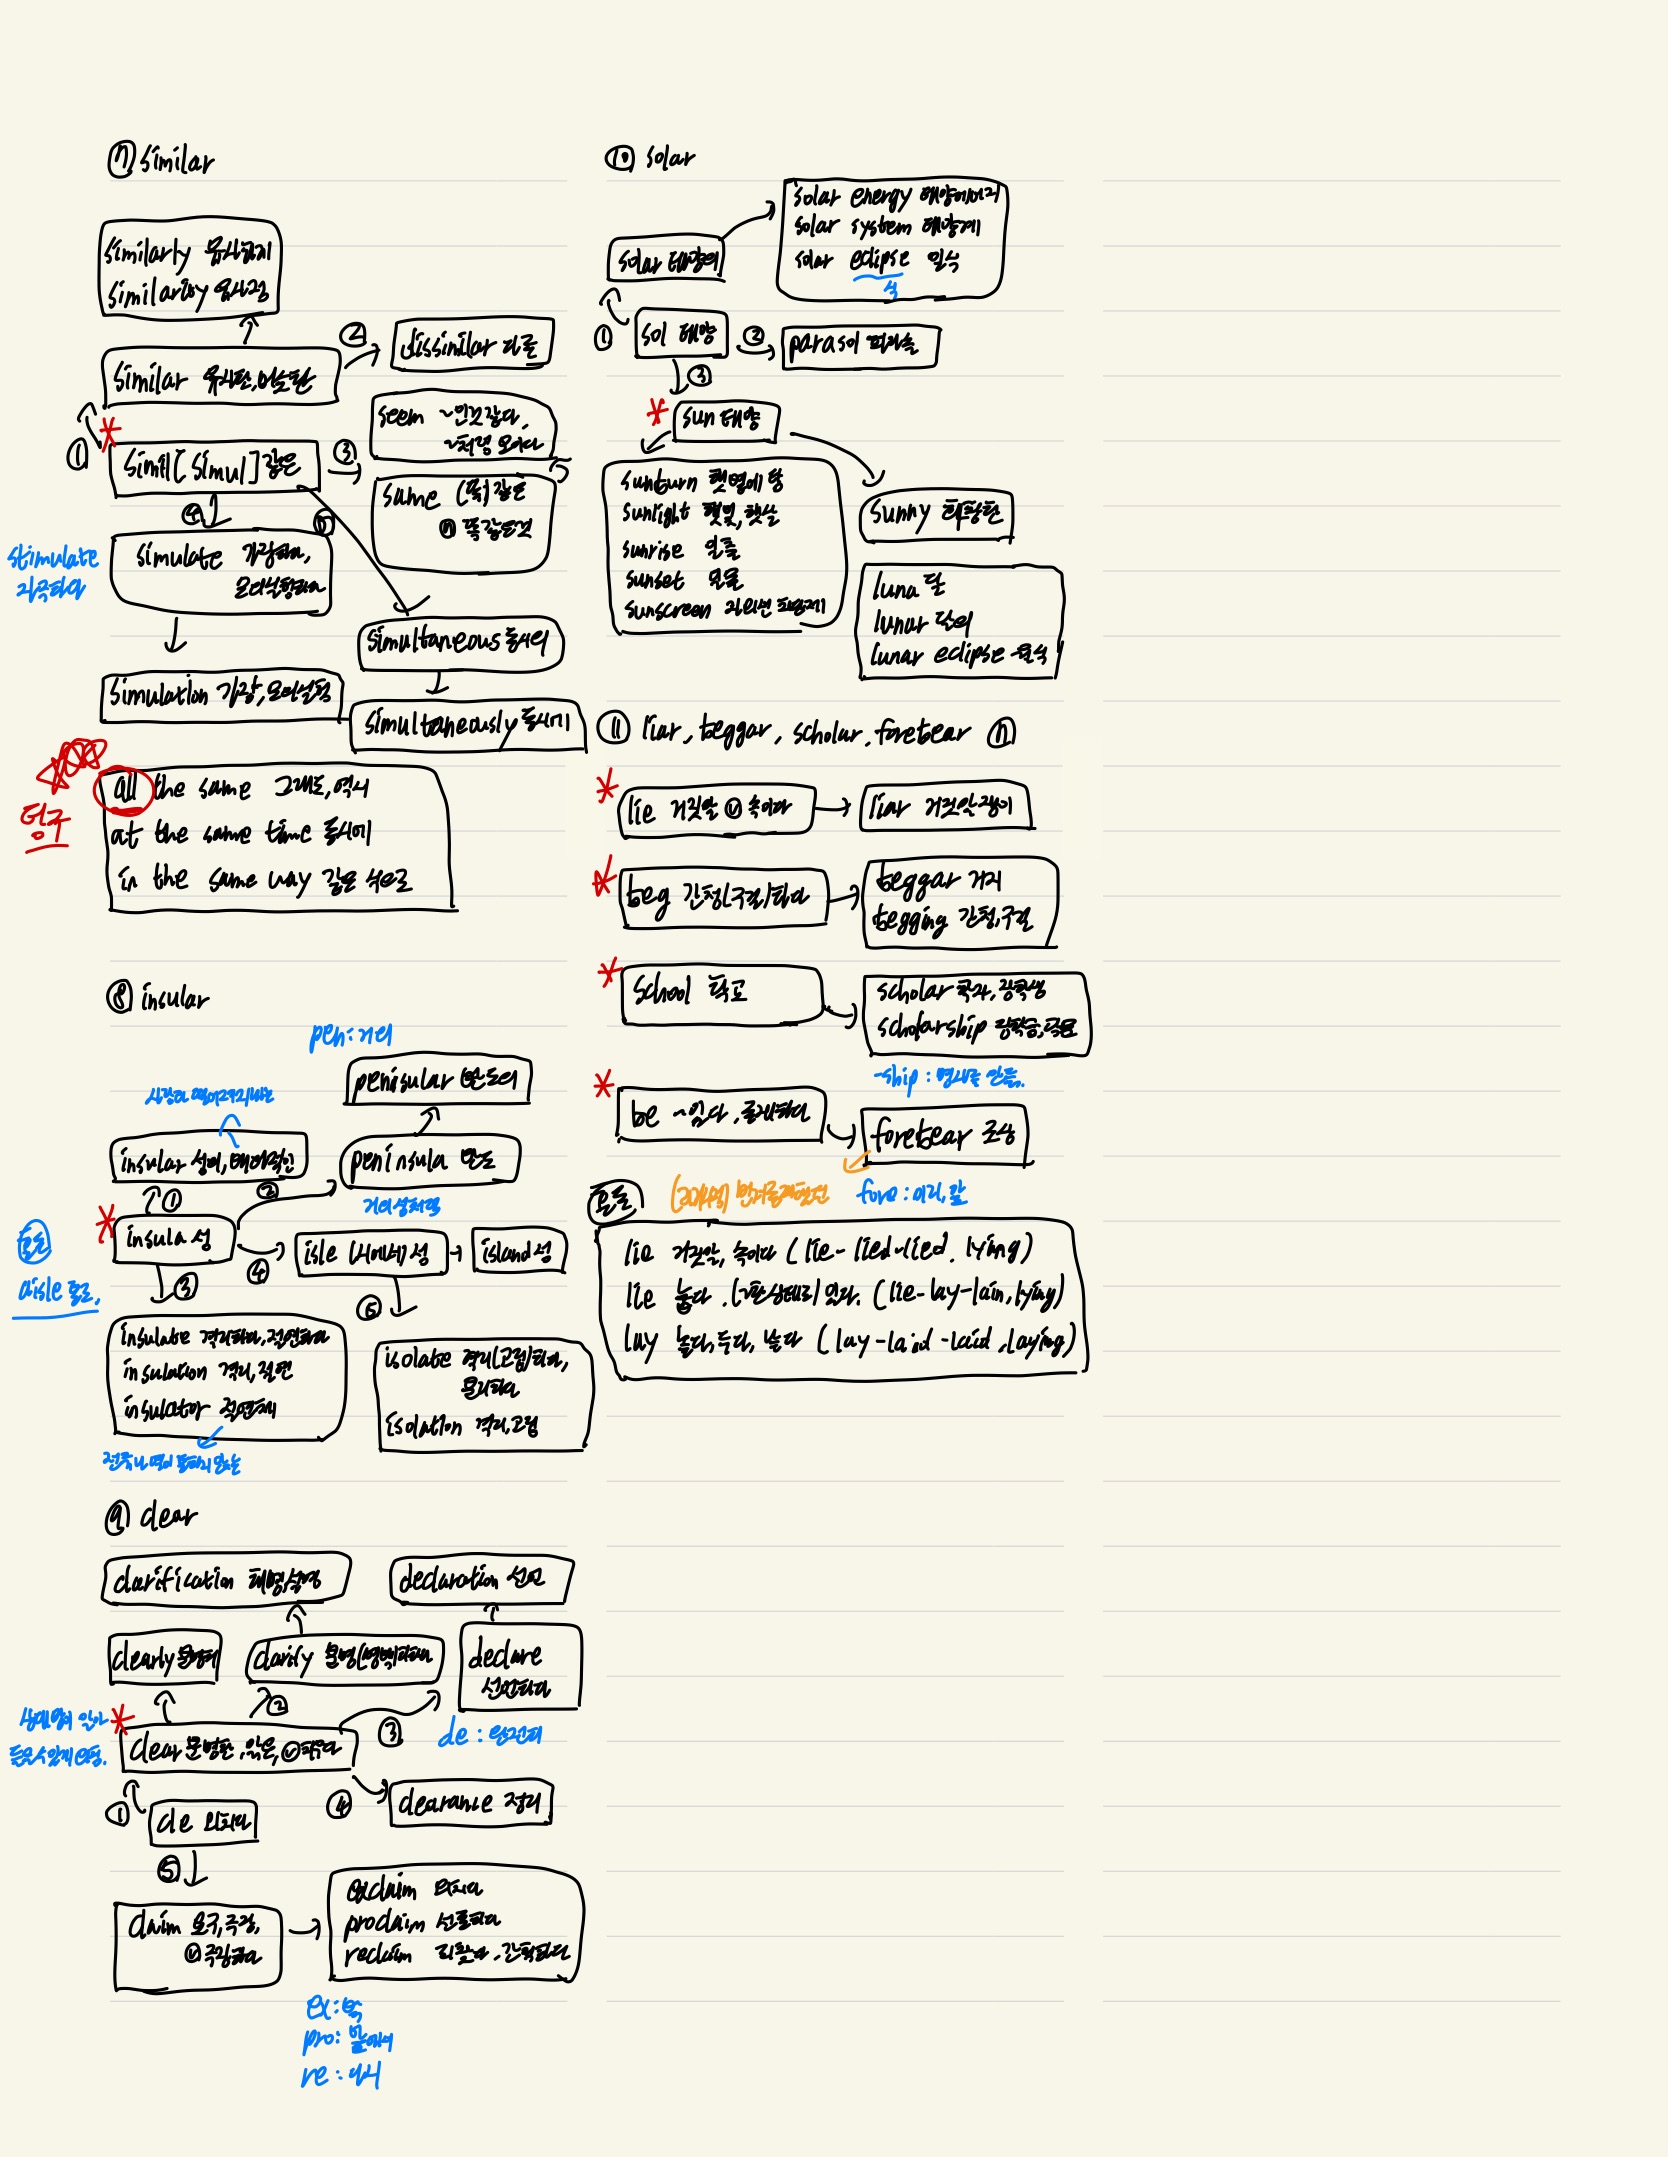 ⑦ similar
similarly 유사하게
similarity 유사점
similar 유사한, 비슷한
② dissimilar 다른
①
simil[simul] 같은
③
seem ~인것 같다,
~처럼 보이다
same (똑)같은
ⓝ 똑같은것
④
⑤
stimulate
자극하다
simulate 가장하다,
모의실험하다
simultaneous 동시의
simulation 가장, 모의실험
simultaneously 동시에
암구
all the same 그래도, 역시
at the same time 동시에
in the same way 같은 식으로
⑧ insular
pen : 거의
peninsular 반도의
insular 섬의, 배타적인
peninsula 반도
거의 섬처럼
①
②
insula 섬
혼돈
aisle 통로,
④
isle (시에서) 섬
island 섬
③
⑤
insulate 격리하다, 절연하다
insulation 격리, 절연
insulator 절연체
isolate 격리(고립)하다,
분리하다
isolation 격리, 고립
⑨ clear
clarification 해명, 설명
declaration 선언
clearly 분명히
clarify 분명(명백)히하다
declare
선언하다
de : 완전히
②
③
clear 분명한, 맑은, ⓥ 치우다
④
clearance 정리
①
cle 외치다
⑤
claim 요구, 주장,
ⓥ 주장하다
exclaim 외치다
proclaim 선포하다
reclaim 되찾다, 간척하다
ex : 밖
pro : 앞에서
re : 다시
⑩ solar
solar energy 태양에너지
solar system 태양계
solar eclipse 일식
식
solar 태양의
①
sol 태양
②
parasol 파라솔
③
sun 태양
sunburn 햇볕에 탐
sunlight 햇빛, 햇살
sunrise 일출
sunset 일몰
sunscreen 자외선 차단제
sunny 화창한
luna 달
lunar 달의
lunar eclipse 월식
⑪ liar, beggar, scholar, forebear ⓝ
lie 거짓말 ⓥ 속이다
liar 거짓말쟁이
beg 간청(구걸)하다
beggar 거지
begging 간청, 구걸
school 학교
scholar 학자, 장학생
scholarship 장학금, 학문
-ship : 명사로 만듦.
be ~이다, 존재하다
forebear 조상
fore : 미리, 앞
혼돈
lie 거짓말, 속이다 (lie-lied-lied, lying)
lie 눕다, (~한 상태로) 있다. (lie-lay-lain, lying)
lay 놓다, 두다, 낳다 (lay-laid-laid, laying)